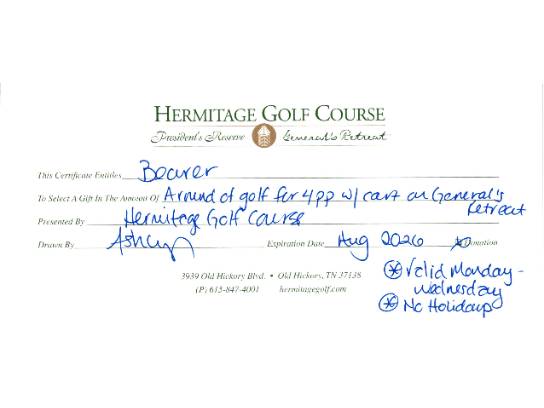 HERMITAGE GOLF COURSE
President's Reserve General's Retreat
This Certificate Entitles Bearer
To Select A Gift In The Amount Of A round of golf for 4pp w/ cart on General's Retreat
Presented By Hermitage Golf Course
Drawn By Ashley Expiration Date Aug 2026 Donation
3939 Old Hickory Blvd. • Old Hickory, TN 37138
(P) 615-847-4001 hermitagegolf.com
* Valid Monday - Wednesday
* No Holidays